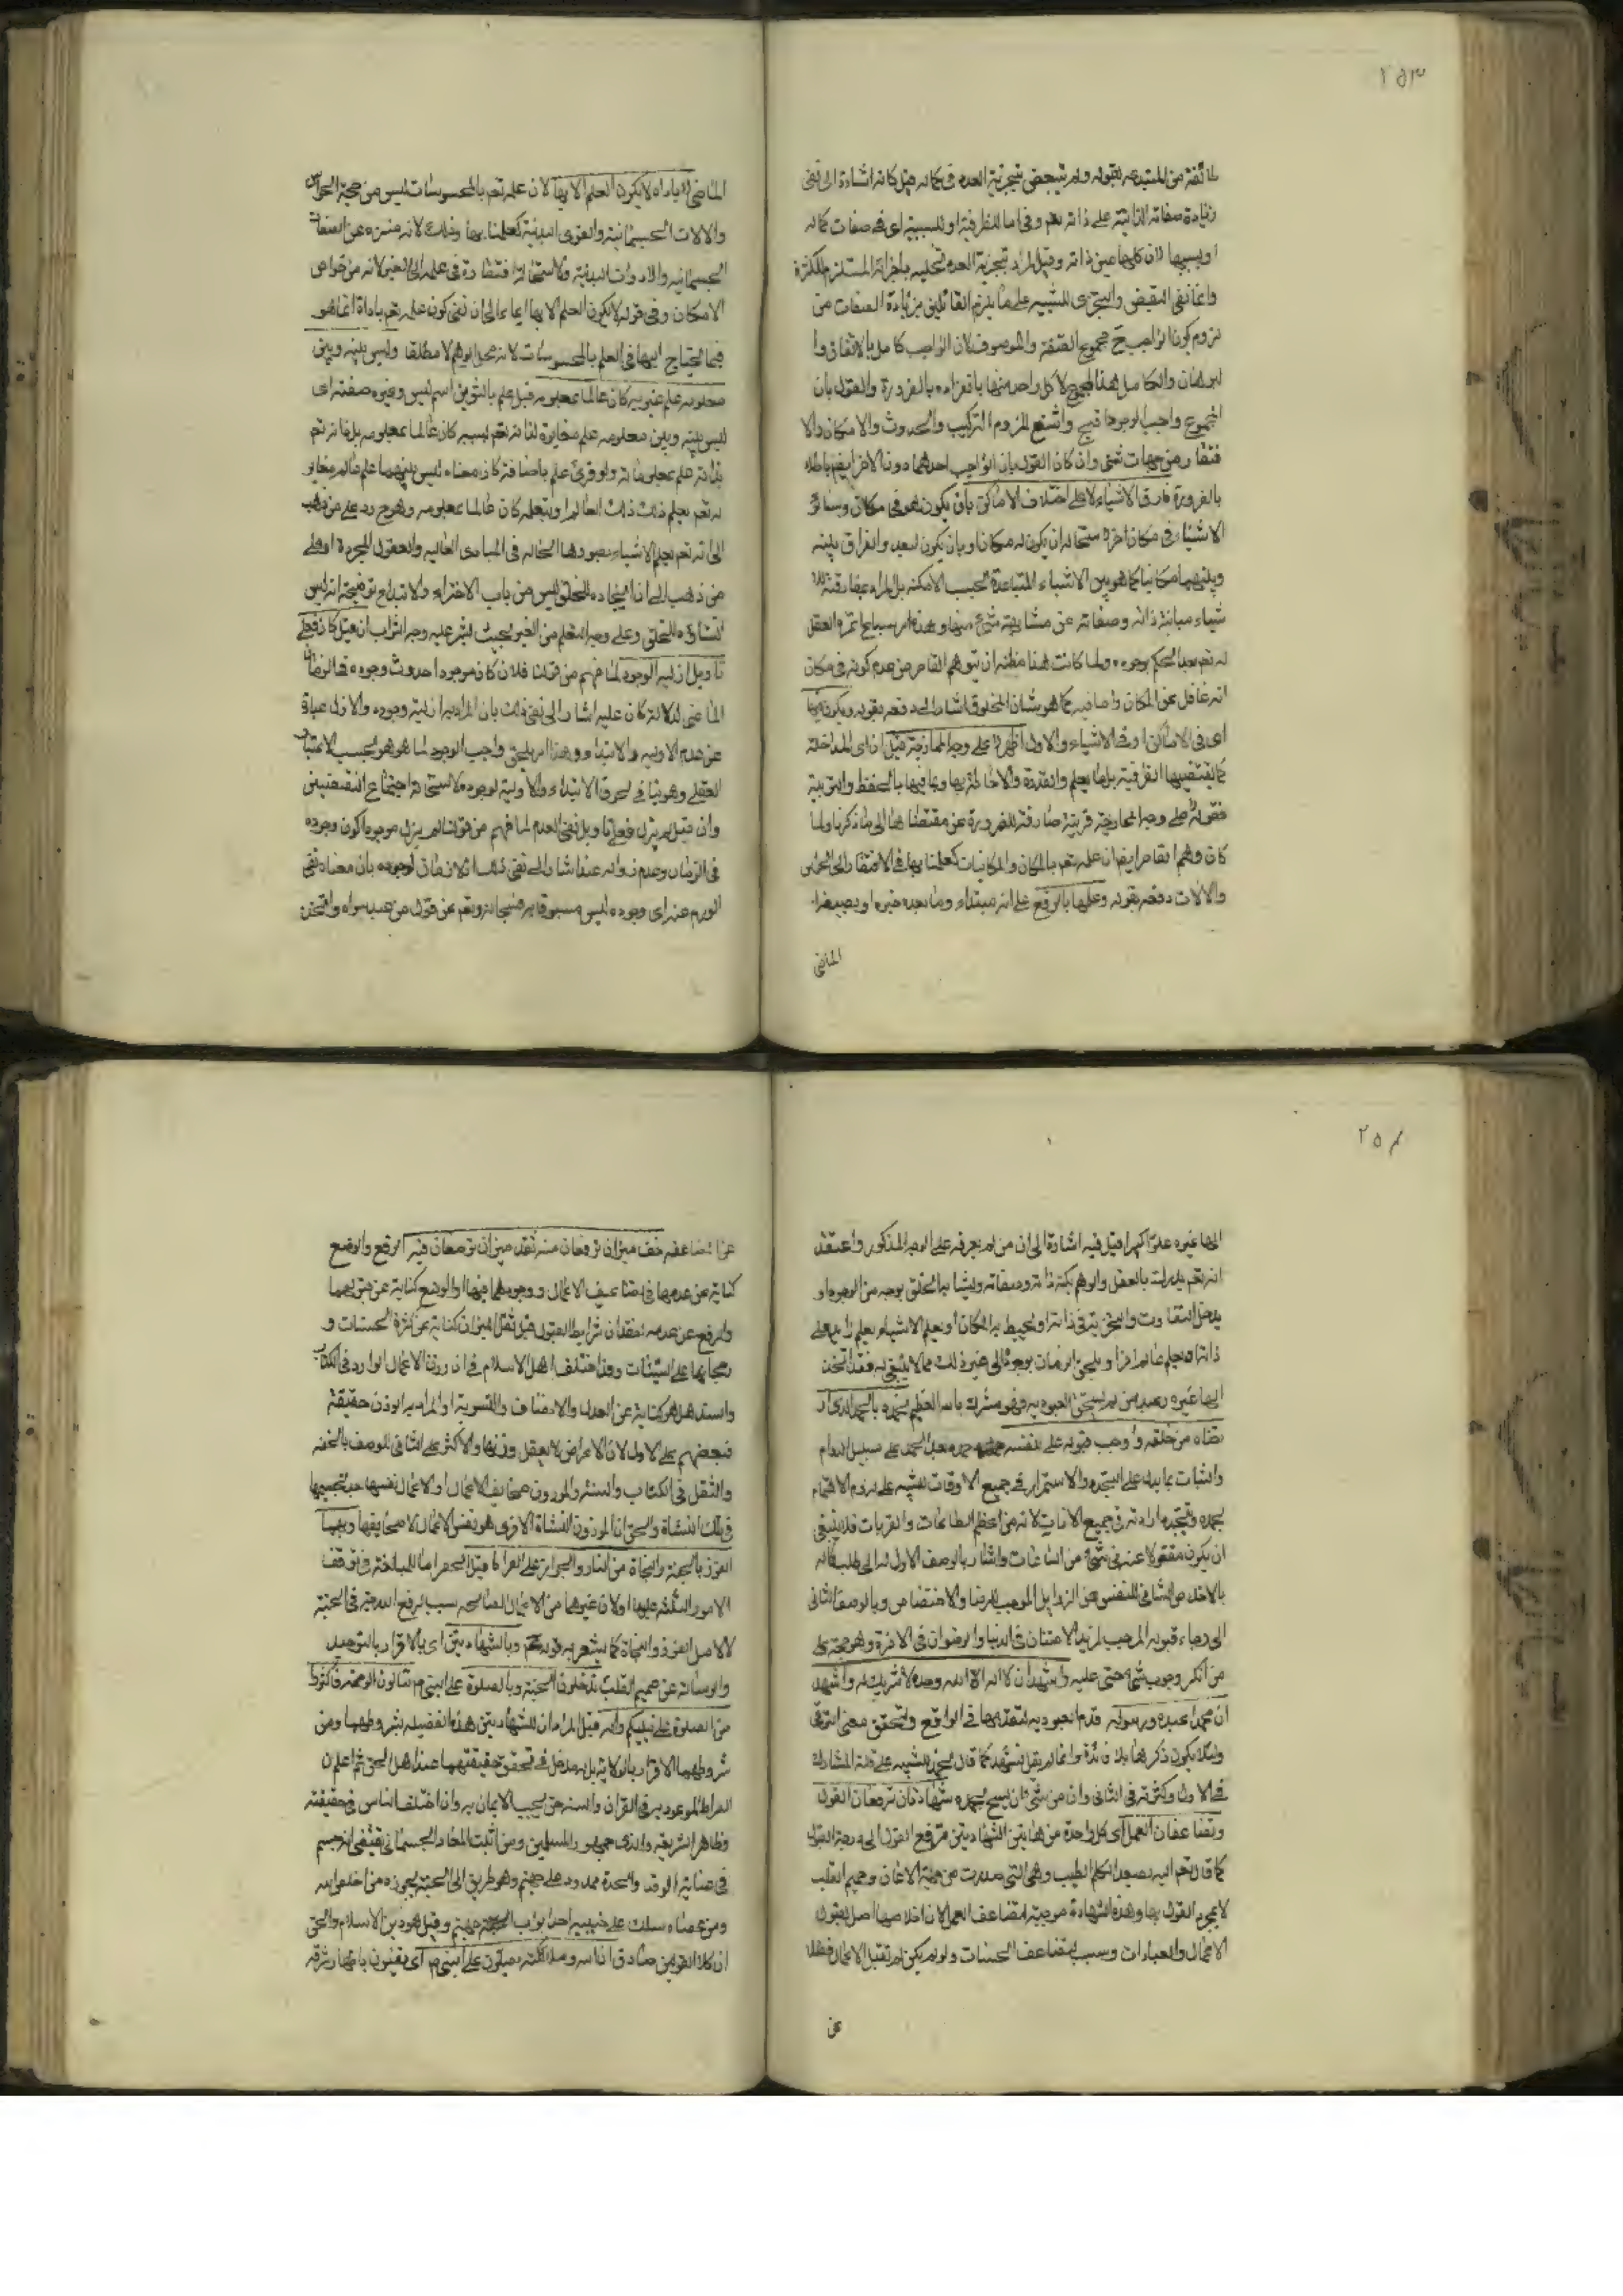 ٢٥٣
طائفة من المبتدعه بقوله ولم يتبعض بتجزئة العدد فى كماله قيل كانه اشارة الى نفى
زيادة صفاته الذاتية على ذاته تعم وفى اما للظرفية او للسببية اى فى صفات كماله
او بسببها لان كلها عين ذاته وقيل المراد بتجزئة العدد تحليله باجزائه المستلزم للكثرة
وانما نفى التبعيض والتجزى للتنبيه على ما يلزم القائلين بزيادة الصفات من
لزوم كون الواجب ح مجموع الصفة والموصوف لان الواجب كامل بالاتفاق وا
لبرهان والكامل هذا المجموع لا كل واحد منها بانفراده بالضرورة والقول بان
المجموع واجب الوجود اقبح واشنع للزوم التركيب والحدوث والامكان والا
فتقار من جهات شتى وان كان القول بان الواجب احدهما دون الاخر ايضا باطلا
بالضرورة فارق الاشياء لا على اختلاف الاماكن بان يكون هو فى مكان وسائر
الاشياء فى مكان اخر لاستحالة ان يكون له مكان او بان يكون البعد والفراق بينه
وبينهما مكانيا كما هو بين الاشياء المتباعدة بحسب الامكنه بل المراد بمفارقته للا
شياء مباينة ذاته وصفاته عن مشابهة شئ منها وهذا امر سبيله اثره العقل
له تعم بعد الحكم بوجوده ولما كانت هذا مظنة ان يتوهم القاصر من عدم كونه فى مكان
انه غافل عن المكان وما فيه كما هو شان المخلوق اشار الى دفعه بقوله ويكون فيها
اى فى الاماكن او فى الاشياء والاول اظهر لا على وجه الممازجة قيل اى المداخلة
كما يقتضيها الظرفية بل بالعلم والقدرة والاحاطة بها وبما فيها بالحفظ والتربية
فقوله لا على وجه الممازجة قرينة صارفة للضرورة عن مقتضاها الى ما ذكرنا ولما
كان وهم القاصر ايضا ان علمه تعم بالمكان والمكانيات كعلمنا بها فى الافتقار الى الحواس
والالات دفعه بقوله وعلمها بالرفع على انه مبتداء وما بعده خبره او بصيغة
الماضى
الماضى لا باداة لا يكون العلم الا بها لان علمه تعم بالمحسوسات ليس من جهة الحواس
والالات الجسمانية والقوى البدنية كعلمنا بها وذلك لانه منزه عن الصفات
الجسمانيه والادوات البدنية ولاستحالة افتقاره فى علمه الى الغير لانه من خواص
الامكان وفى قوله لا يكون العلم الا بها ايماء الى ان نفى كون علمه تعم باداة انما هو
فيما يحتاج اليها فى العلم بالمحسوسات لانه محل الوهم لا مطلقا وليس بينه وبين
معلومه علم غيره به كان عالما بمعلومه قيل علم بالتنوين اسم ليس وغيره صفته اى
ليس بينه وبين معلومه علم مغايرة لذاته تعم بسببه كان عالما بمعلومه بل ذاته تعم
بذاته علم بمعلوماته ولو قرئ علم باضافة كان معناه ليس بينهما علم عالم مغاير
له تعم بعلم ذلك العالم او بتعلمه كان عالما بمعلومه وهو ح رد على من ذهب
الى انه تعم يعلم الاشياء بصورها الحالة فى المبادى العاليه والعقول المجردة او على
من ذهب الى ان ايجاده للخلق ليس من باب الاختراع والابتداع توضيحه انه ليس
انشاؤه للخلق وعلى وجه التعلم من الغير بحيث يشر عليه وجه الثواب ان قيل كان فعلى
تاويل ازليه الوجود لما فهم من قولنا فلان كان موجودا حدوث وجوده فى الزمان
الماضى لدلالة كان عليه اشار الى نفى ذلك بان المراد به ازلية وجوده والازل عبارة
عن عدم الاوليه والابتداء وهذا امر يلحق واجب الوجود لما هو هو بحسب الاعتبار
العقلى وهو ينافى لحوق الابتداء والاولية لوجوده لاستحالة اجتماع النقيضين
وان قيل لم يزل فعلى تاويل نفى العدم لما فهم من قولنا لم يزل موجودا كون وجوده
فى الزمان وعدم زواله عنه اشار الى نفى ذلك لوجوده بان معناه نفى
العدم عنه اى وجوده ليس مسبوقا به فسبحانه وتعم عن قول من عبد سواه واتخذ
٢٥٤
الها غيره علوا كبيرا قيل فيه اشارة الى ان من لم يعرفه على الوجه المذكور واعتقد
انه تعم يدرك بالعقل والوهم بكنه ذاته وصفاته ويشابه الخلق بوجه من الوجوه او
يدخل التفاوت والتجزية فى ذاته او يحيط به المكان او يعلم الاشياء بعلم زايد على
ذاته او بعلم عالم اخر او يلحق الزمان بوجوده الى غير ذلك مما لا يليق به فقد اتخذ
الها غيره وعبد من لم يستحق العبوديه فهو مشرك بالله العظيم نحمده بالحمد الذى ار
تضاه من خلقه واوجب قبوله على نفسه جعل الحمد على سبيل الدوام
والثبات بما يدل على التجدد والاستمرار فى جميع الاوقات تنبيه على لزوم الاهتمام
بحمده وتجدد ارادته فى جميع الانات لانه من اعظم الطاعات والقربات فلا ينبغى
ان يكون مغفولا عنه فى شئ من الساعات واشار بالوصف الاول الى طلب كماله
بالاخلاص الشافى للنفس عن الرذايل الموجب للرضا والاختصاص وبالوصف الثانى
الى رجاء قبوله الموجب لمزيد الامتنان فى الدنيا والرضوان فى الاخرة وهو حجة على
من انكر وجوب شئ حتى عليه واشهد ان لا اله الا الله وحده لا شريك له واشهد
ان محمدا عبده ورسوله قدم العبوديه لتقدمها فى الواقع ولتحقق معنى الترقى
ولئلا يكون ذكرها بلا فائدة وانما لم يقل نشهد كما قال نحمده للتنبيه على قلة المشارك
فى الاول وكثرته فى الثانى وان من شئ الا يسبح بحمده شهادتان ترفعان القول
وتضاعفان العمل اى كل واحدة من هاتين الشهادتين ترفع القول الى درجة القبول
كما قال تعم اليه يصعد الكلم الطيب وهى التى صدرت من جهة الاذعان وصميم القلب
لا بمجرد القول بها وهذه الشهادة موجبة لتضاعف العمل لان اخلاصها اصل لقبول
الاعمال والعبادات وسبب لتضاعف الحسنات ولو لم يكن لم تقبل الاعمال فضلا
عن
عن التضاعفه خف ميزان ترفعان منه وثقل ميزان توضعان فيه الرفع والوضع
كناية عن عدمها فى تضاعيف الاعمال ووجودهما فيها او الوضع كناية عن قبولهما
والرفع عن عدمه لفقدان شرايط القبول قيل ثقل الميزان كناية عن كثرة الحسنات و
رجحانها على السيئات وقد اختلف اهل الاسلام فى ان وزن الاعمال الوارد فى الكتاب
والسنة هل هو كناية عن العدل والانصاف والتسوية او المراد به الوزن حقيقة
فبعضهم على الاول لان الاعراض لا يعقل وزنها والاكثر على الثانى للوصف بالخفه
والثقل فى الكتاب والسنة والموزون صحايف الاعمال او الاعمال نفسها بعد تجسيمها
فى تلك النشاة والحق ان الموزون فى النشاة الاخرى هو نفس الاعمال لا صحايفها وبهما
الفوز بالجنة والنجاة من النار والجواز على الصراط قيل الحصر اما للمبالغة فى توقف
الامور الثلثه عليهما او لان غيرهما من الاعمال الصالحه سبب لرفع الدرجة فى الجنة
لا لاصل الفوز والنجاة كما يشعر به قوله وبالشهادتين اى بالاقرار بالتوحيد
والرسالة عن صميم القلب تدخلون الجنة وبالصلوة على النبى ص تنالون الرحمة فاكثروا
من الصلوة على نبيكم واله قيل المراد ان للشهادتين هذه الفضيله بشروطهما ومن
شروطهما الاقرار بالولاية بل له مدخل فى تحقق حقيقتهما عند اهل الحق ثم اعلم ان
الصراط الموعود به فى القران والسنه حق يجب الايمان به وان اختلف الناس فى حقيقته
وظاهر الشريعه والذى جمهور المسلمين ومن اثبت المعاد الجسمانى يقتضى انه جسم
فى غاية الدقة والحدة ممدود على جهنم وهو طريق الى الجنة يجوزه من اخلص لله
ومن عصاه سلك على جنبيه احد ابواب جهنم وقيل هو دين الاسلام والحق
ان كلا القولين صادق ان الله وملائكته يصلون على النبى ص اى يعتنون باظهار شرفه